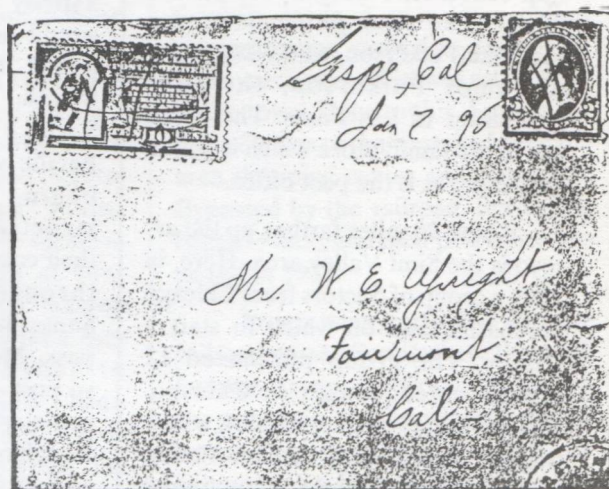 Gespe, Cal
Jan 7 95
Mr. W. E. Wright
Fairmont
Cal